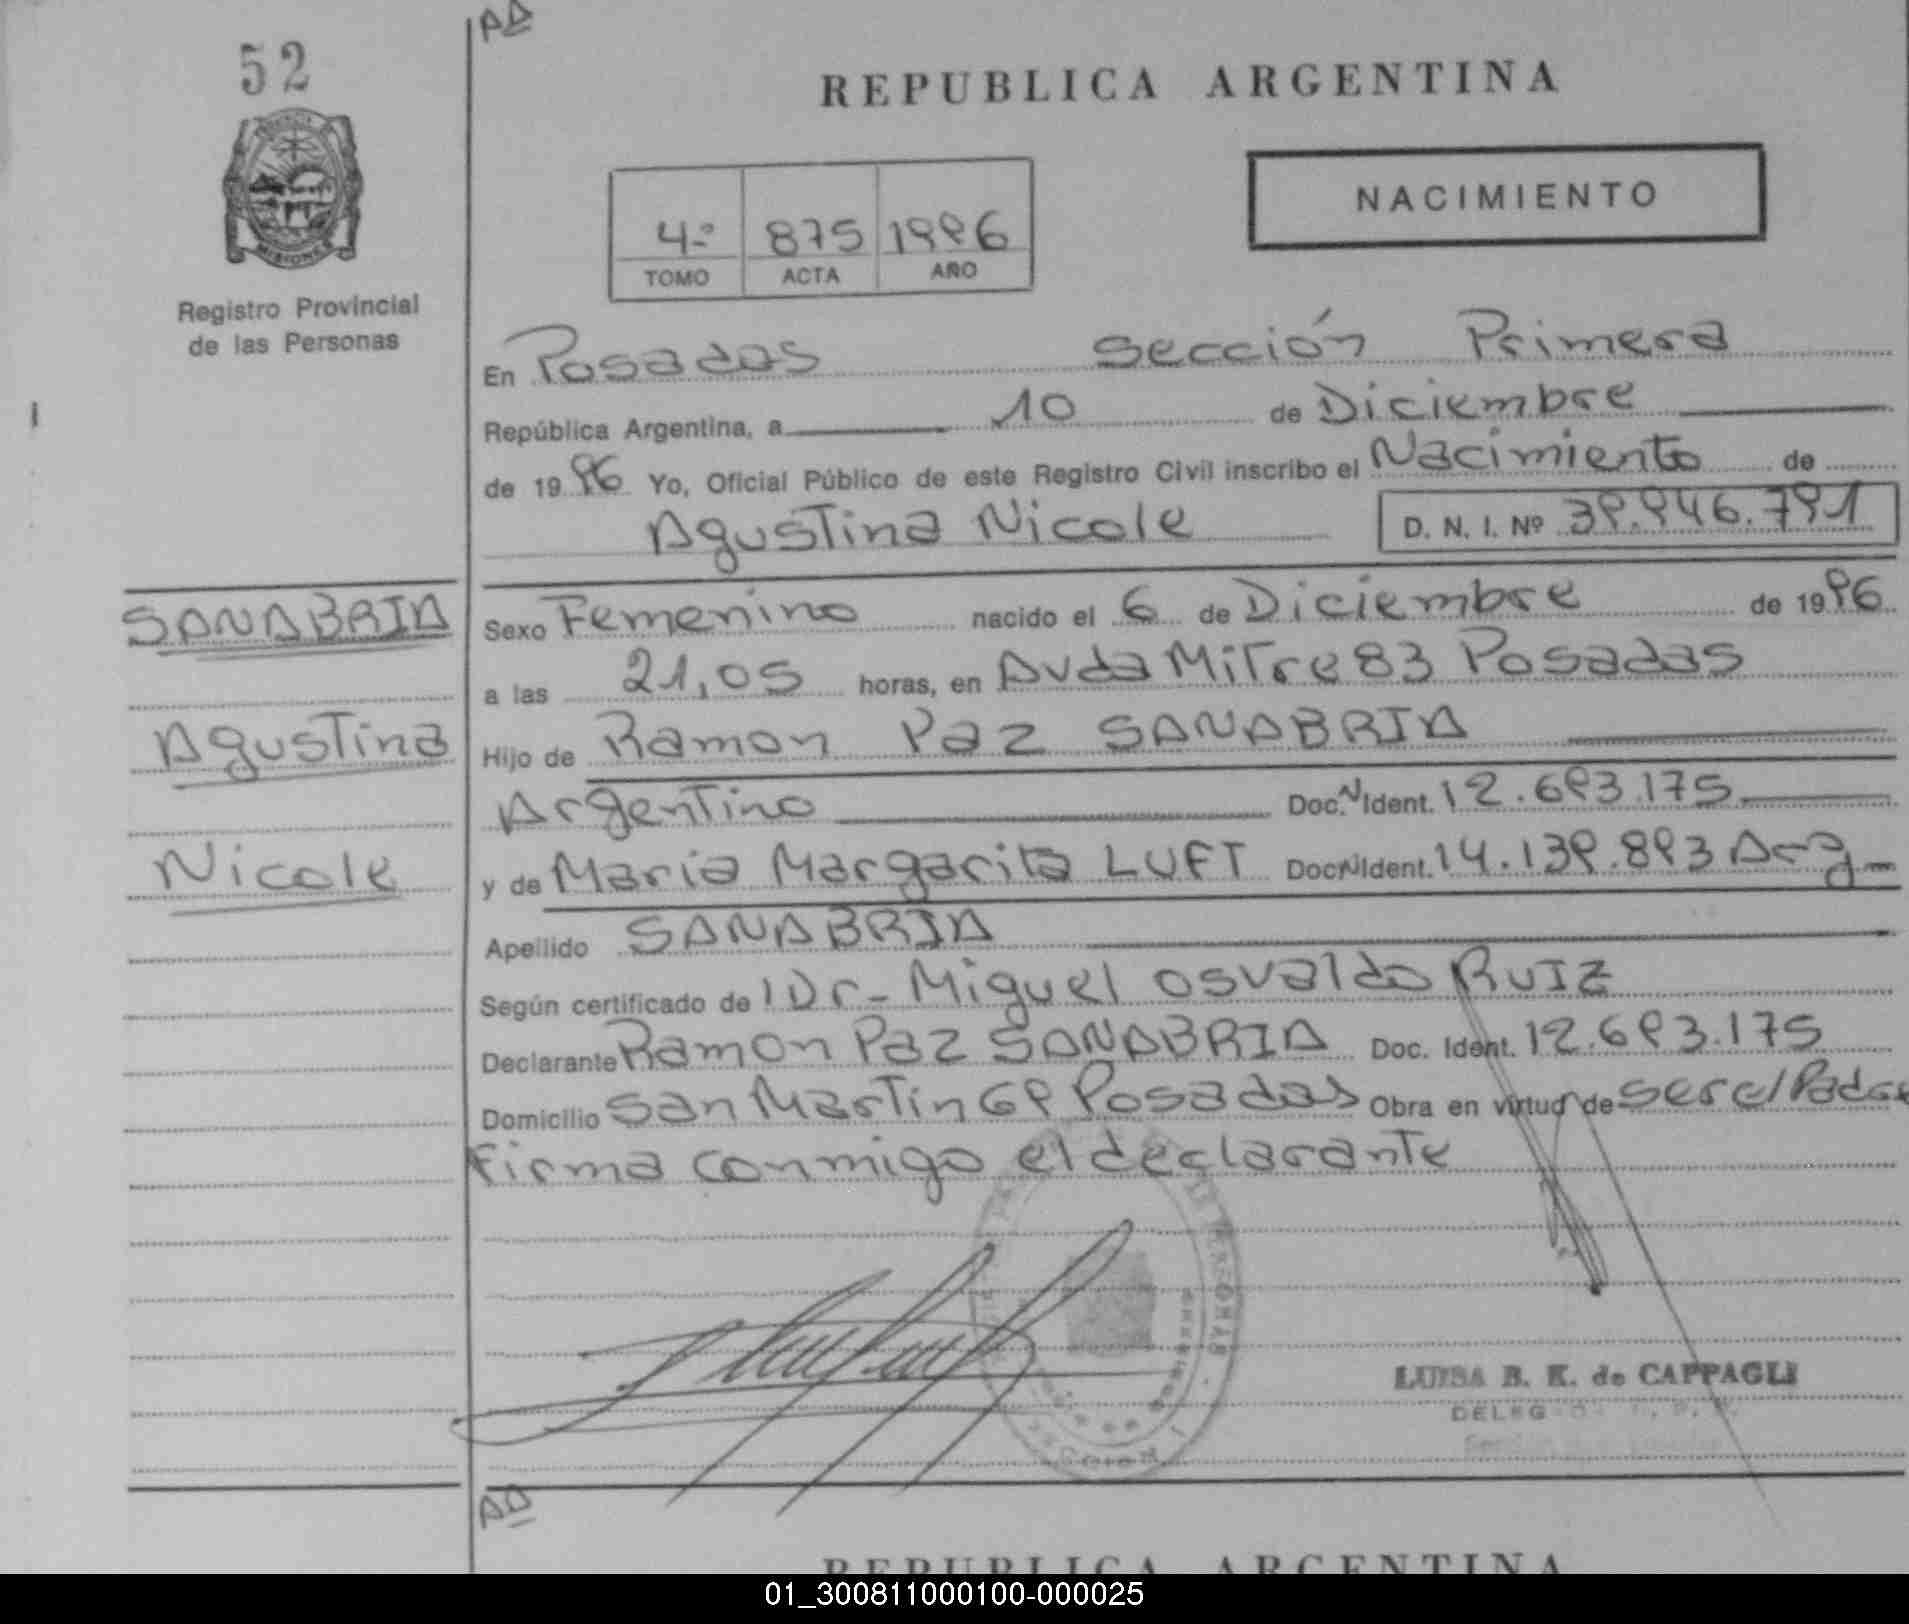 AD
52
REPUBLICA ARGENTINA
NACIMIENTO
4º 875 1996
TOMO ACTA AÑO
MISIONES
Registro Provincial
de las Personas
En Posadas Sección Primera
República Argentina, a 10 de Diciembre
de 1996 Yo, Oficial Público de este Registro Civil inscribo el Nacimiento de
Agustina Nicole D. N. I. Nº 39.946.791
SANABRIA
Agustina
Nicole
Sexo Femenino nacido el 6 de Diciembre de 1996
a las 21,05 horas, en Avda Mitre 83 Posadas
Hijo de Ramon Paz SANABRIA
Argentino Doc. N Ident. 12.693.175
y de Maria Margarita LUFT Doc. N Ident. 14.139.893 Arg
Apellido SANABRIA
Según certificado de Dr- Miguel Osvaldo RUIZ
Declarante Ramon Paz SANABRIA Doc. Ident. 12.693.175
Domicilio San Martin 69 Posadas Obra en virtud de ser el Padre
Firma conmigo el declarante
LUISA B. K. de CAPPAGLI
AD
REPUBLICA ARGENTINA
01_300811000100-000025